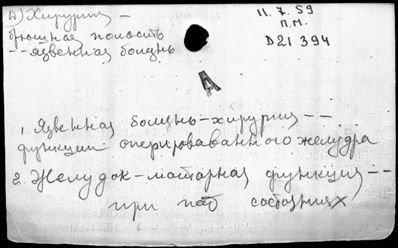 Д) Хирургия –
брюшная полость
-- язвенная болезнь
11.7.59
П.М.
D21 394
А
1. Язвенная болезнь-хирургия --
функции оперироваванного желудка
2. Желудок-моторная функция --
при пат состояниях